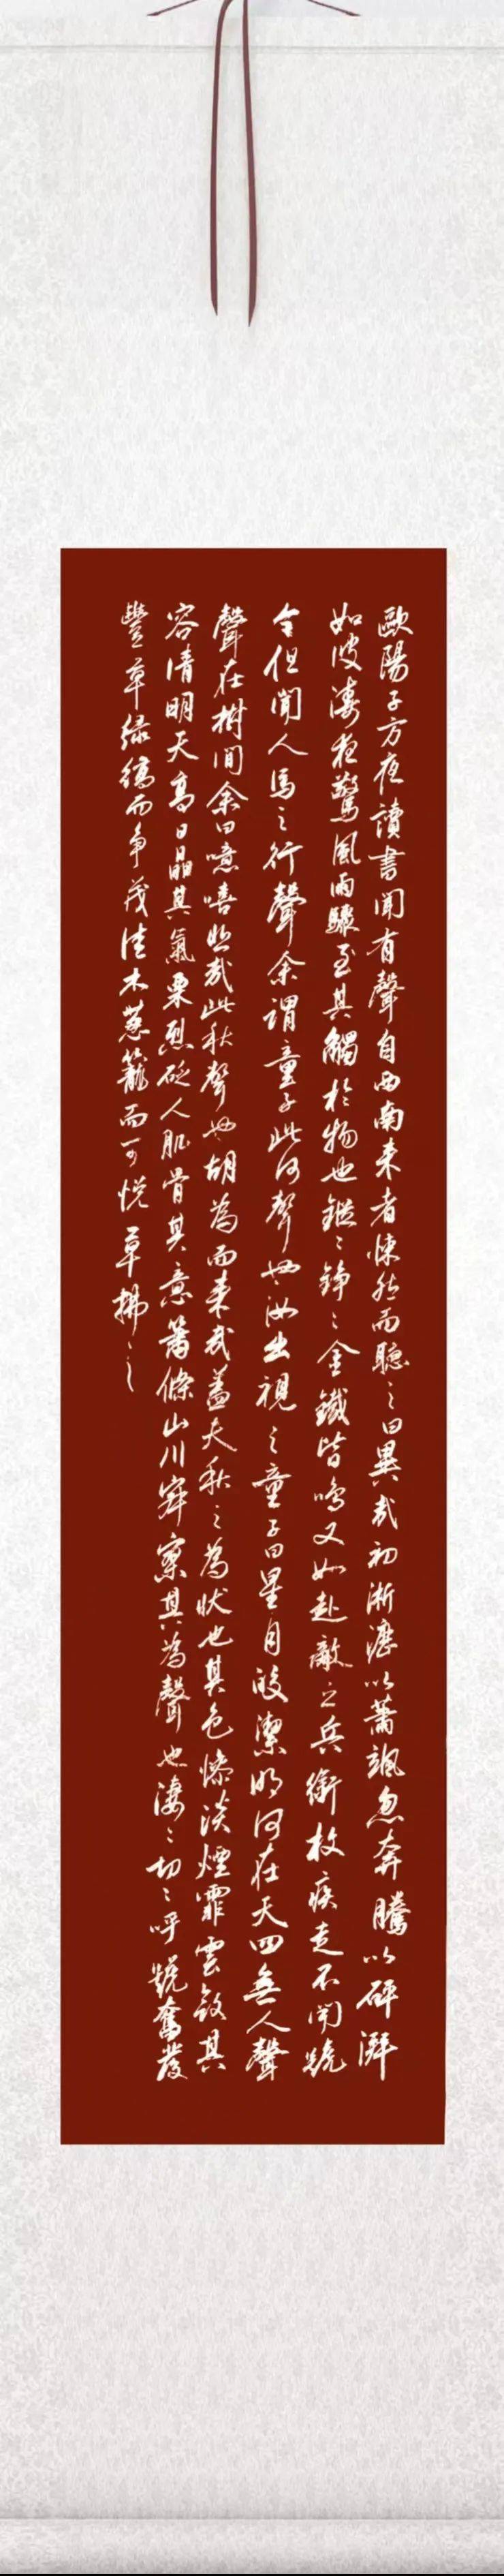 歐陽子方夜讀書聞有聲自西南來者悚然而聽之曰異哉初淅瀝以蕭颯忽奔騰以砰湃
如波濤夜驚風雨驟至其觸於物也鏦〻錚〻金鐵皆鳴又如赴敵之兵銜枚疾走不聞號
令但聞人馬之行聲余謂童子此何聲也汝出視之童子曰星月皎潔明河在天四無人聲
聲在樹間余曰噫嘻悲哉此秋聲也胡為而來哉蓋夫秋之為狀也其色慘淡煙霏雲斂其
容清明天高日晶其氣栗烈砭人肌骨其意蕭條山川寂寥其為聲也淒〻切〻呼號奮發
豐草綠縟而爭茂佳木蔥籠而可悅草拂之